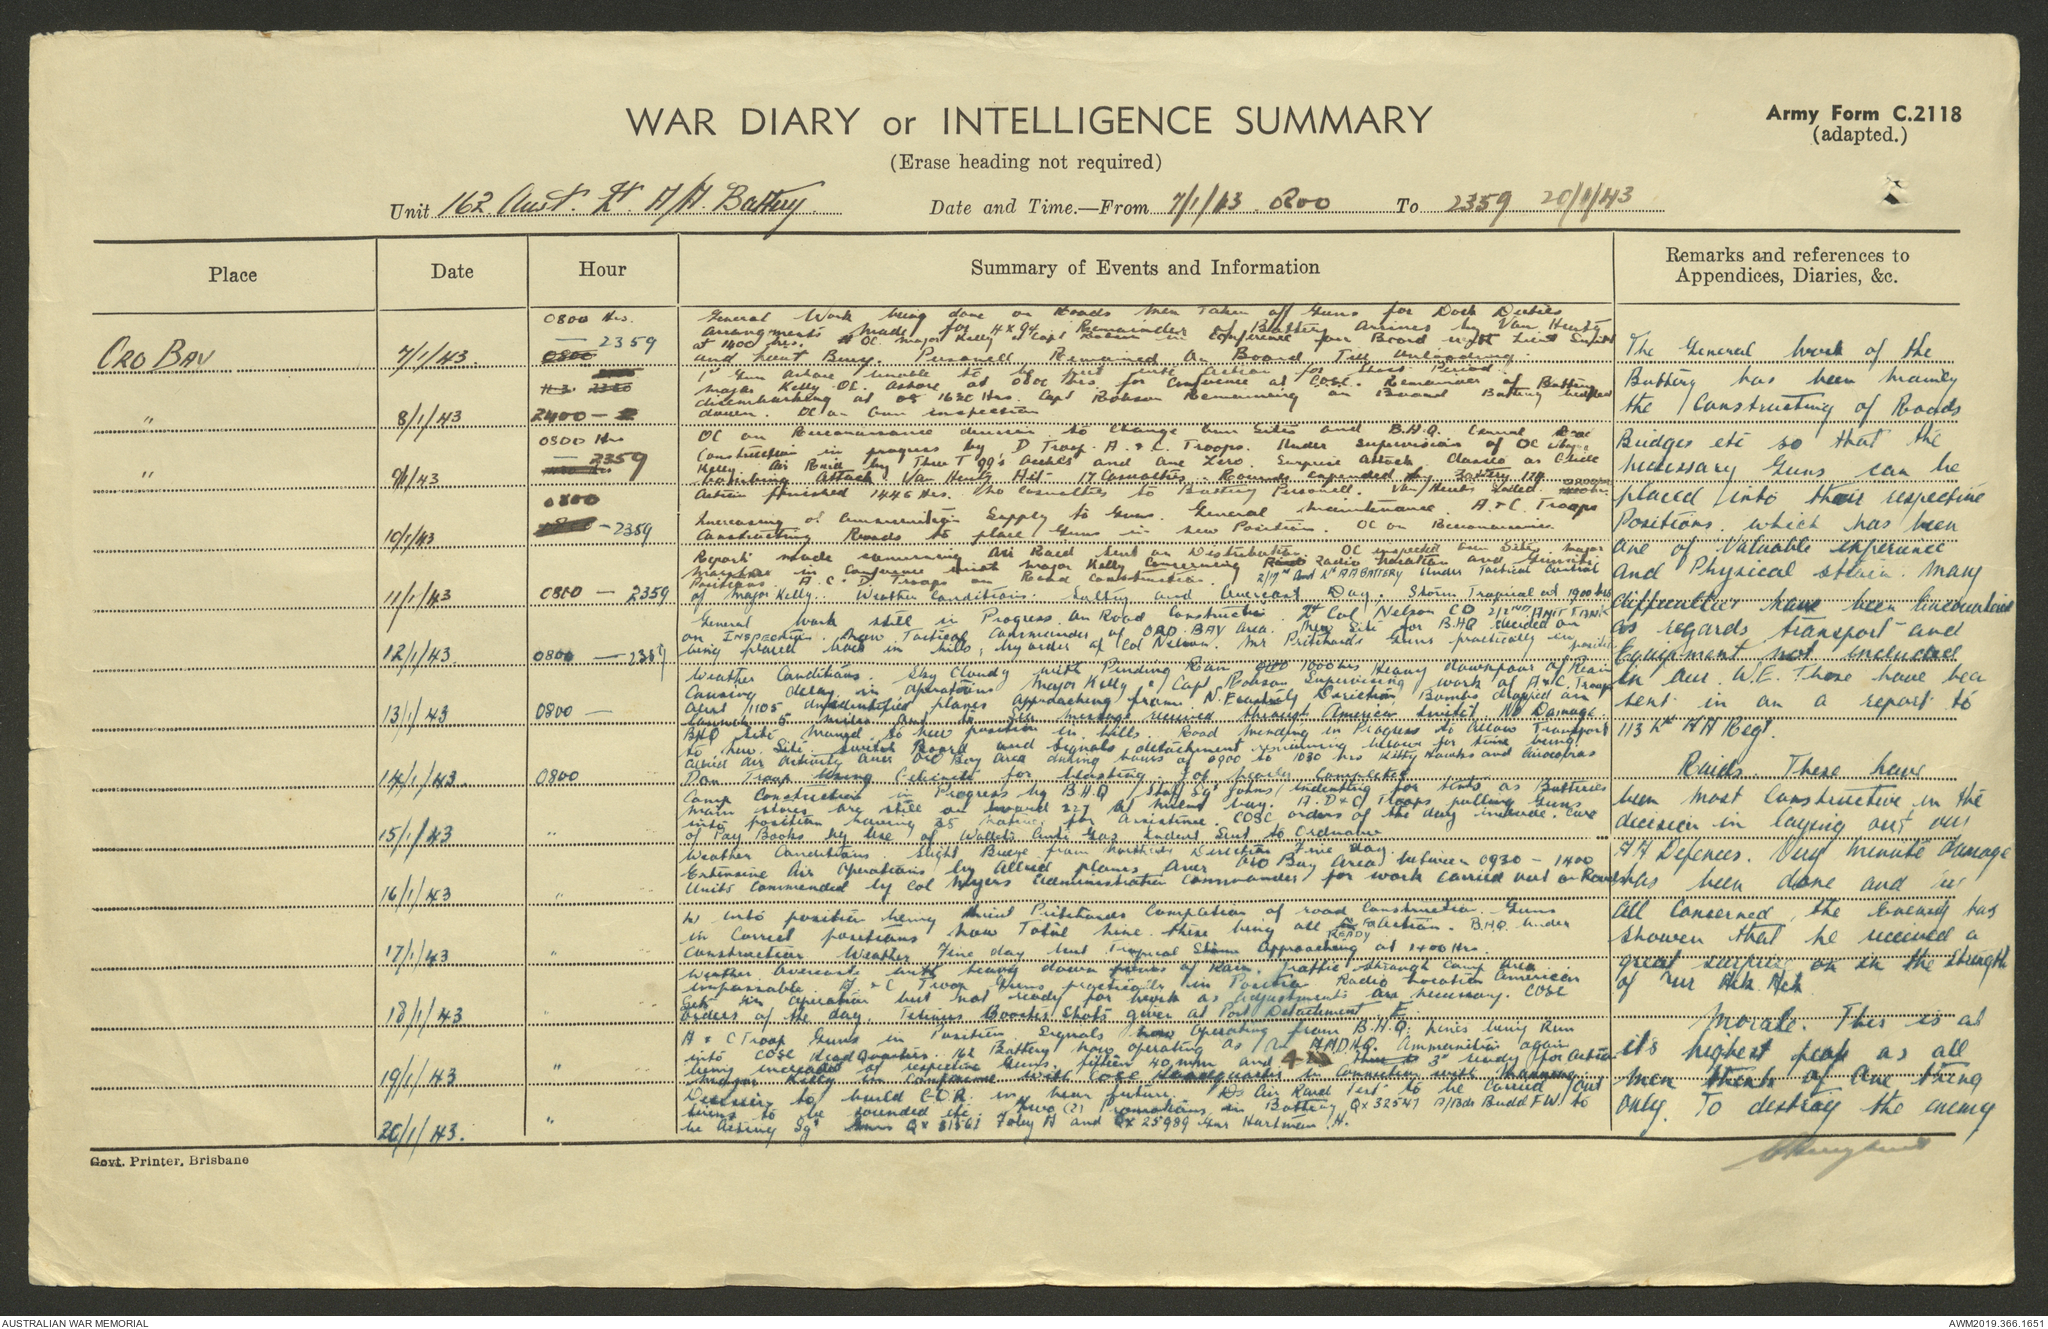 WAR DIARY or INTELLIGENCE SUMMARY
Army Form C.2118
(adapted.)
(Erase heading not required)
Unit 162 Aust. Lt. A/A. Battery.
Date and Time.—From 7/1/43 0800 To 2359 20/1/43
Place
Date
Hour
Summary of Events and Information
Remarks and references to
Appendices, Diaries, &c.
ORO BAY
7/1/43.
0800 Hrs.
— 2359
General Work being done on Roads Men taken off Guns for Dock Duties
arrangments made for Remainder of Battery arrives by Van Heutz
at 1400 hrs. OC. Major Kelly & Capt Robson in conference on Board with Lieut
and Lieut Bury. Personell Remained On Board Till unloading.
"
8/1/43
2400 —
1st Gun ashore unable to be put into action for short Period.
Major Kelly OC. ashore at 0800 Hrs. for Conference at COSC. Remainder of Battery
disembarking at 1630 Hrs. Capt Robson Remaining on Board Battery
down. OC on Gun inspection
"
9/1/43
0800 Hrs
— 2359
OC on Reconnaissance decision to change Gun Sites and B.H.Q. General Road
Construction in progress by D Troop. A. & C. Troops. Under supervision of OC Major
Kelly. Air Raid by Three T 99's and one Zero. Surprise attack classed as Glide
bombing Attack Van Heutz Hit. 17 Casualties. Rounds expended by Battery
Action finished 1445 Hrs. No casualties to Battery Personell. Van Heutz
10/1/43
0800
—2359
Increasing of Ammunition Supply to Guns. General maintenance. A & C. Troops
Constructing Roads to place Guns in new Position. OC on Reconnaissance
11/1/43
0800 — 2359
Report made concerning Air Raid sent on Distribution. OC inspected Gun Sites. Major
in conference with Major Kelly concerning Radio Location and Gunsite
Positions. A. C & D. Troops on Road Construction. 2/9th and Lt AA BATTERY under Tactical Control
of Major Kelly. Weather Conditions: Sultry and Overcast Day. Storm Tropical at 1900 hrs
12/1/43.
0800 — 2359
General Work still in Progress on Road Construction. Lt Col. Nelson CO 2/2nd ANTI TANK
on INSPECTION. Now Tactical Commander of ORO BAY Area. New Site for B.H.Q. decided on
being placed back in hills, by order of Col Nelson. Mr Pritchards Guns practically in position
13/1/43
0800 —
Weather Conditions. Sky Cloudy with Pending Rain. 1000 hrs Heavy downpour of Rain
Causing delay in operations Major Kelly & Capt Robson Supervising work of A & C. Troops
Alert 1105 unidentified planes approaching from N. Easterly Direction Bombs dropped on
message received through American source No Damage.
14/1/43
0800
BHQ Site moved to new position in hills. Road mending in Progress to allow Transport
to new Site. Switch Board and Signals detachment remaining below for time being.
Allied Air Activity over Oro Bay area during hours of 0900 to 1030 hrs Kitty Hawks and Airacobras
Don Troop using Gelignite for blasting. Job nearly completed
15/1/43
"
Camp Construction in Progress by B.H.Q. Staff Sgt Johns indenting for tents as Batteries
main stores are still on board at Milne Bay. A. D & C Troops pulling Guns
into position having 35 natives for assistance. COSC orders of the day include. Care
of Pay Books by Use of Wallets Anti Gas Indent Sent to Ordnance
16/1/43
"
Weather Conditions. Slight Breeze from Direction Fine day.
Extensive Air Operations by Allied planes over Oro Bay Area between 0930 – 1400
Units Commended by Col Myers Administration Commander for work carried out on Roads
17/1/43
"
Lieut Pritchards Completion of road Construction. Guns
in Correct positions now Total nine. these being all READY for action. B.H.Q. under
Construction Weather Fine day but Tropical Storm approaching at 1400 Hrs.
18/1/43
"
Weather overcast with heavy down pours of Rain. Traffic through Camp Area
impassable. A & C Troop Guns practically in Position Radio Location American
Set in operation but not ready for work as adjustments are necessary. COSC
Orders of the day. Tetanus Booster Shots given at Port Detachment F.
19/1/43
"
A & C Troop Guns in Position Signals now operating from B.H.Q. lines being Run
into COSC Head Quarters. 162 Battery now operating as an A.A.D.H.Q. Ammunition again
being increased at respective Guns. fifteen 40 mm and 3" ready for action
Major Kelly in Conference with COSC Headquarters in Connection with Manning.
20/1/43.
"
Decision to build G.O.R. in near future. Air Raid Test to be carried out
Sirens to be sounded etc. Two (2) Promotions in Battery QX 32547 A/Bdr Budd F.W. to
be Acting Sgt Gnrs QX 31561 Foley N and QX 25989 Gnr Hartman H.
The General Work of the
Battery has been mainly
the Constructing of Roads
Bridges etc so that the
necessary Guns can be
placed into their respective
Positions. which has been
one of Valuable experience
and Physical strain. Many
difficulties have been encountered
as regards transport and
Equipment not included
in our W.E. These have been
sent in on a report to
113 Lt AA Regt.
Raids. These have
been most Constructive in the
decision in laying out our
AA Defences. Very minute damage
has been done and in
all Concerned, the Enemy has
shown that he received a
great surprise on in the strength
of our Ack Ack
Morale. This is at
it's highest peak as all
men think of one thing
only. To destroy the enemy
Govt. Printer, Brisbane
AUSTRALIAN WAR MEMORIAL
AWM2019.366.1651